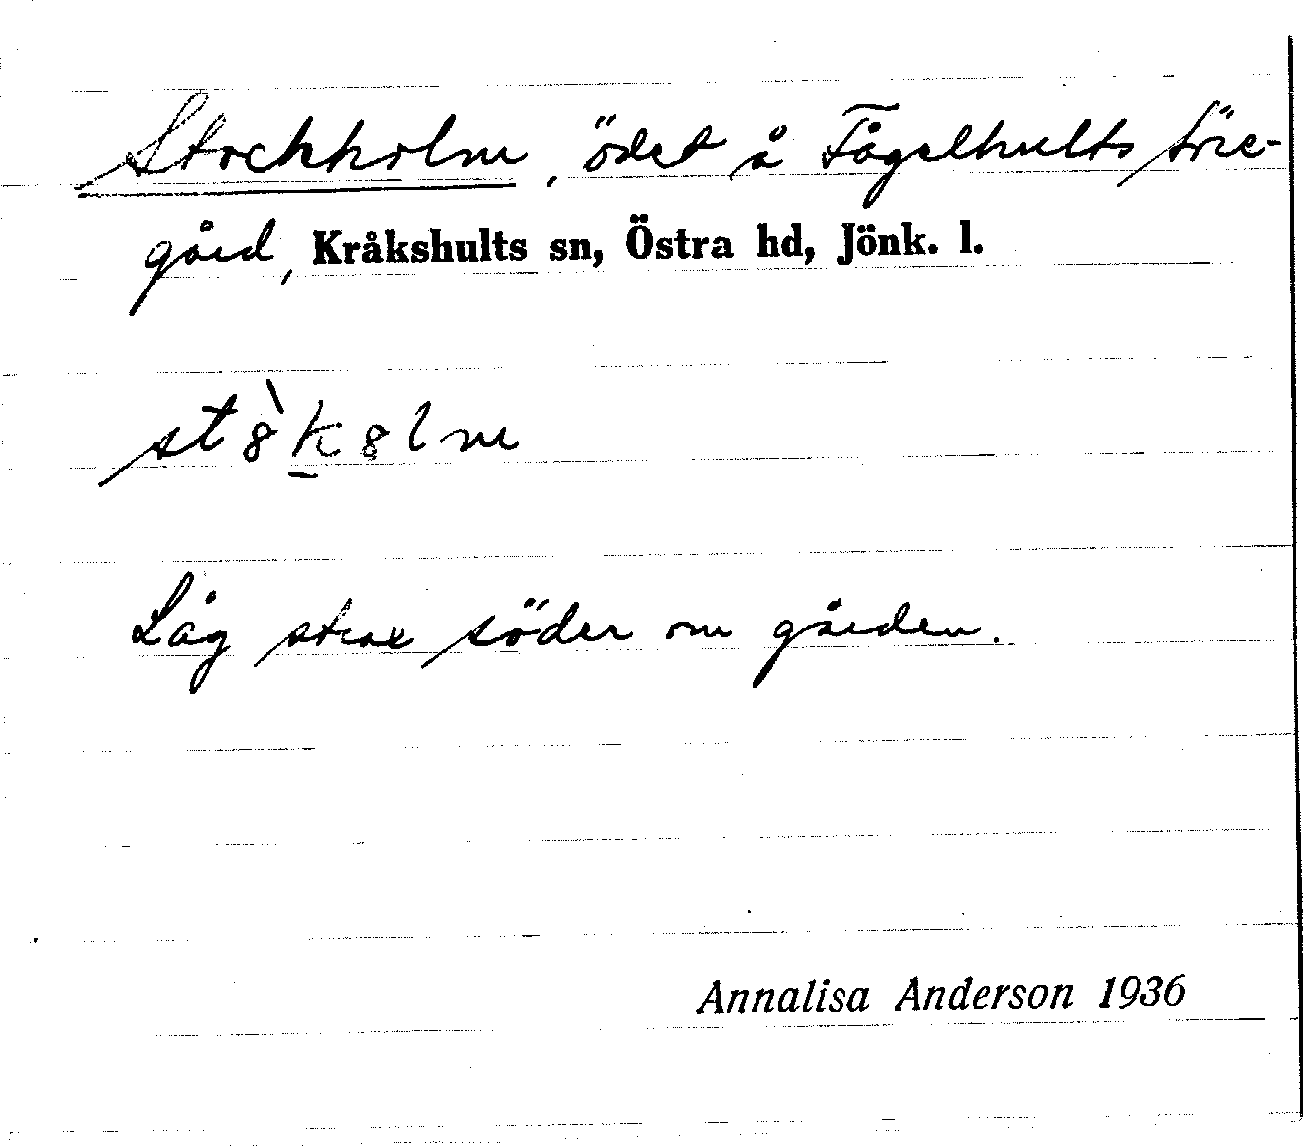 Stockholm, ödet å Fågelhults Söre-
gård, Kråkshults sn, Östra hd, Jönk. l.
stòk̲olm
Låg strax söder om gården.
Annalisa Anderson 1936